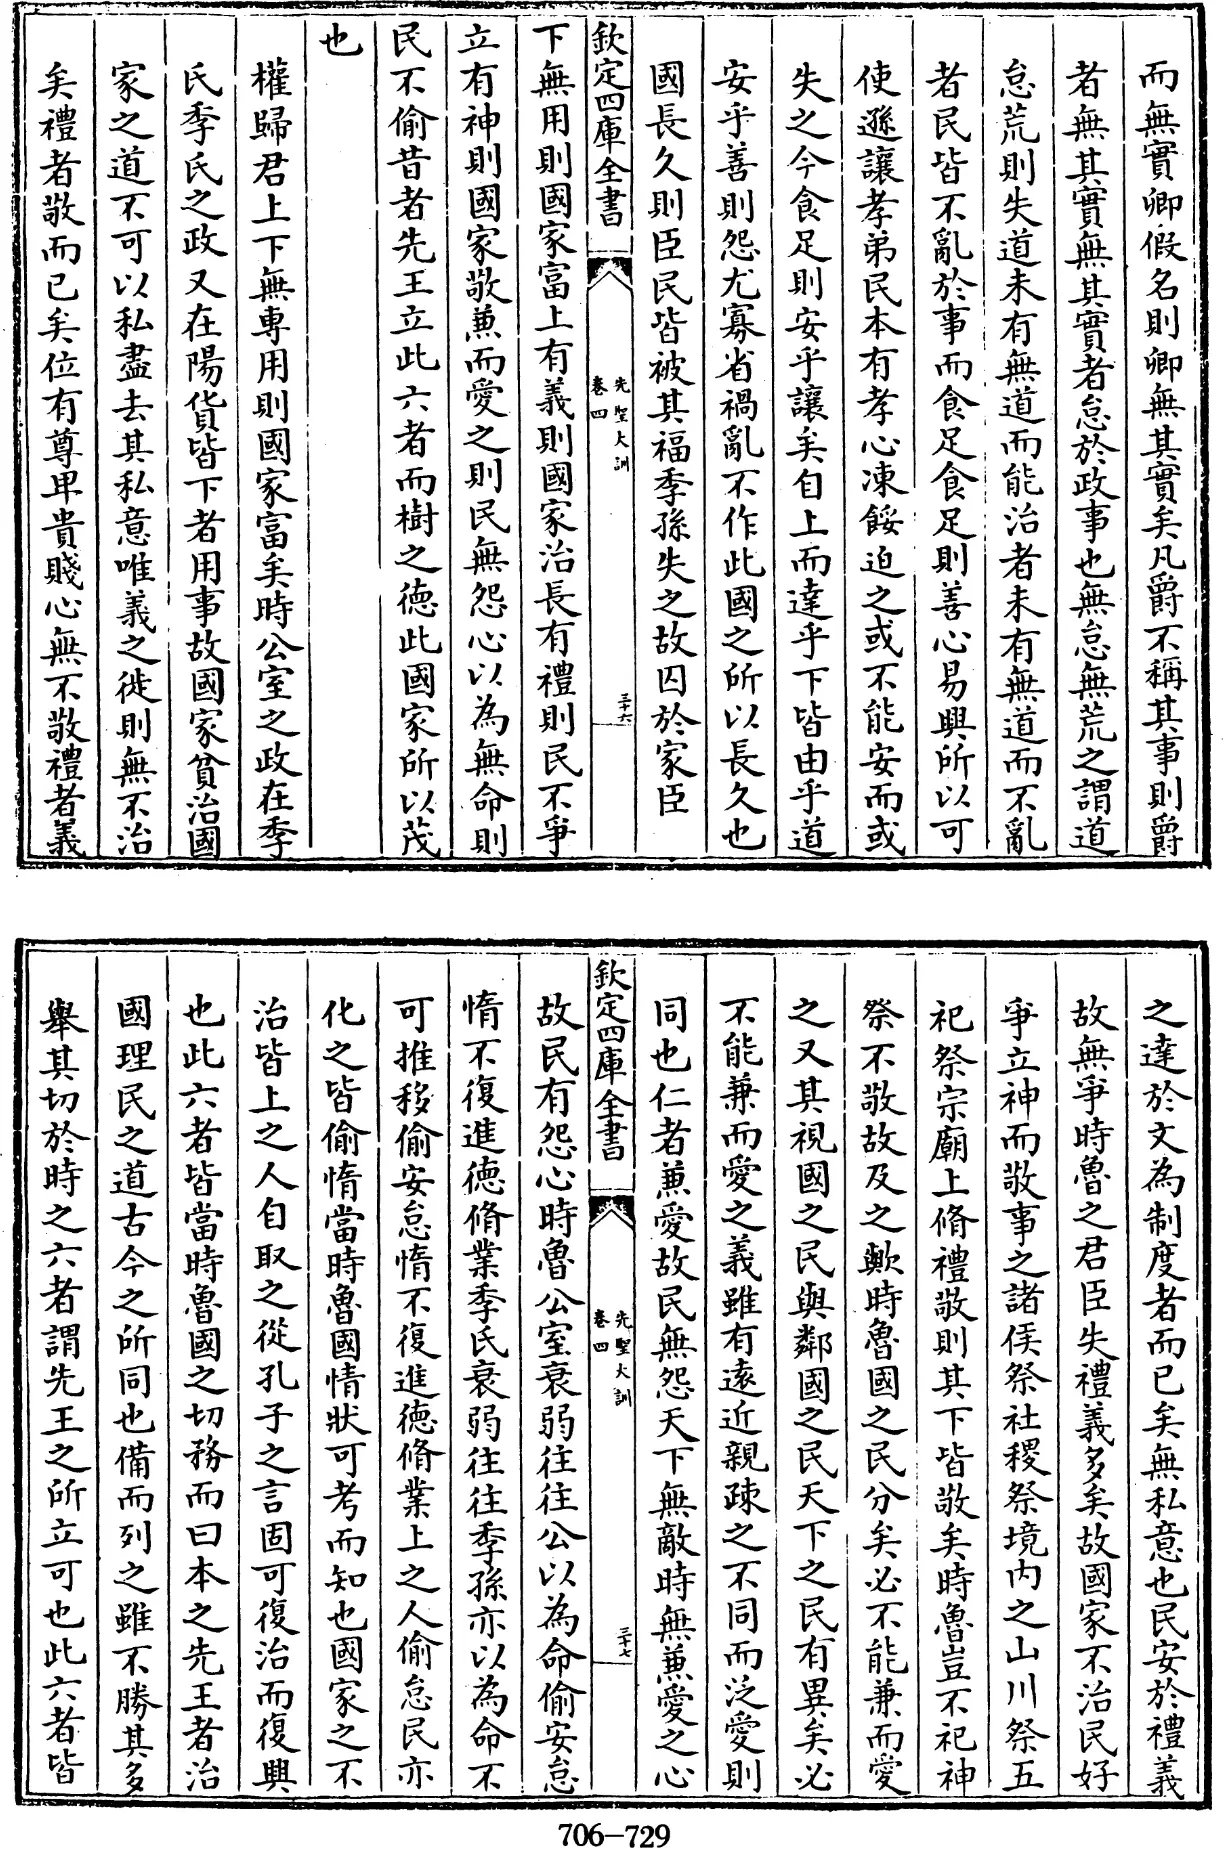 而無實卿假名則卿無其實矣凡爵不稱其事則爵
者無其實無其實者怠於政事也無怠無荒之謂道
怠荒則失道未有無道而能治者未有無道而不亂
者民皆不亂於事而食足食足則善心易興所以可
使遜讓孝弟民本有孝心凍餒迫之或不能安而或
失之今食足則安乎讓矣自上而達乎下皆由乎道
安乎善則怨尤寡省禍亂不作此國之所以長久也
國長久則臣民皆被其福季孫失之故囚於家臣
欽定四庫全書
先聖大訓
卷四
三十六
下無用則國家富上有義則國家治長有禮則民不爭
立有神則國家敬兼而愛之則民無怨心以為無命則
民不偷昔者先王立此六者而樹之德此國家所以茂
也
權歸君上下無專用則國家富矣時公室之政在季
氏季氏之政又在陽貨皆下者用事故國家貧治國
家之道不可以私盡去其私意唯義之徙則無不治
矣禮者敬而已矣位有尊卑貴賤心無不敬禮者義
之達於文為制度者而已矣無私意也民安於禮義
故無爭時魯之君臣失禮義多矣故國家不治民好
爭立神而敬事之諸侯祭社稷祭境內之山川祭五
祀祭宗廟上脩禮敬則其下皆敬矣時魯豈不祀神
祭不敬故及之歟時魯國之民分矣必不能兼而愛
之又其視國之民與鄰國之民天下之民有異矣必
不能兼而愛之義雖有遠近親疎之不同而泛愛則
同也仁者兼愛故民無怨天下無敵時無兼愛之心
欽定四庫全書
先聖大訓
卷四
三十七
故民有怨心時魯公室衰弱往往公以為命偷安怠
惰不復進德脩業季氏衰弱往往季孫亦以為命不
可推移偷安怠惰不復進德脩業上之人偷怠民亦
化之皆偷惰當時魯國情狀可考而知也國家之不
治皆上之人自取之從孔子之言固可復治而復興
也此六者皆當時魯國之切務而曰本之先王者治
國理民之道古今之所同也備而列之雖不勝其多
舉其切於時之六者謂先王之所立可也此六者皆
706-729